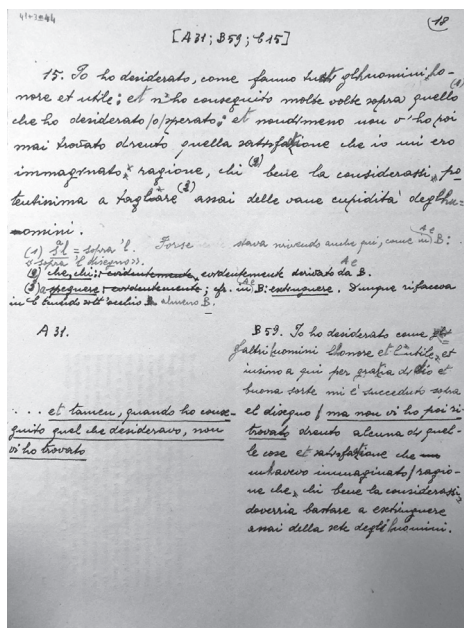 41+3=44
18
[A31; B59; C15]
15. Io ho desiderato, come fanno tutti gli huomini, ho-
nore et utile; et n'ho conseguito molte volte sopra quello (1)
che ho desiderato /o/ sperato; et nondimeno non v'ho poi
mai trovato drento quella satisfatione che io mi ero
immaginato; ragione, chi (2) bene la considerassi, po-
tentissima a tagliare (3) assai delle vane cupidità degli hu-
omini.
(1) = sopra 'l. Forse stava rivivendo anche qui, come in B:
«sopra 'l disegno».
(2) che, chi; evidentemente, evidentemente derivato da B.
(3) a; evidentemente; cfr. in B: extinguere. Dunque rifaceva
in C sott'occhio almeno B.
A 31.
. . . et tamen, quando ho conse-
guito quel che desideravo, non
vi ho trovato
B 59. Io ho desiderato come gl'
altri huomini l'honore et l'utile, et
insino a qui per gratia di Dio et
buona sorte mi è succeduto sopra
el disegno / ma non vi ho poi ri-
trovato drento alcuna di quel-
le cose et satisfatione che
m'havevo immaginato / ragio-
ne che, chi bene la considerassi,
doverria bastare a extinguere
assai della sete degl'huomini.